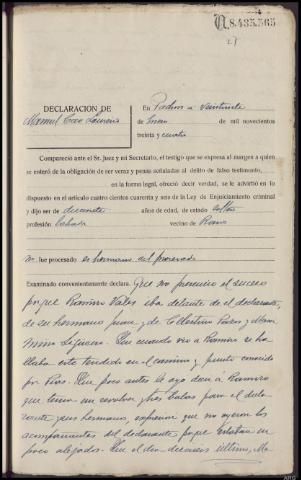 N.8.435.565
DECLARACION DE
Manuel
En Padron a veintisiete
de Enero de mil novecientos
treinta y cuatro
Compareció ante el Sr. Juez y mi Secretario, el testigo que se expresa al margen a quien
se enteró de la obligación de ser veraz y penas señaladas al delito de falso testimonio,
en la forma legal, ofreció decir verdad, se le advirtió en lo
dispuesto en el artículo cuatro cientos cuarenta y seis de la Ley de Enjuiciamiento criminal
y dijo ser de diecisiete años de edad, de estado soltero
profesión labrador vecino de
fué procesado es hermano del procesado
Examinado convenientemente declara. Que no presencio el suceso
porque Ramiro iba delante de el declarante,
de su hermano Jesus y de Celestino y
Que cuando vio a Ramiro se ha
llaba este tendido en el camino y punto conocido
por Que poco antes le oyo decir a Ramiro
que tenia un revolver y tres balas para el decla-
rante y sus hermanos, expresion que no oyeron los
acompañantes del declarante porque estaban un
poco alejados. Que el dia dieciseis ultimo,